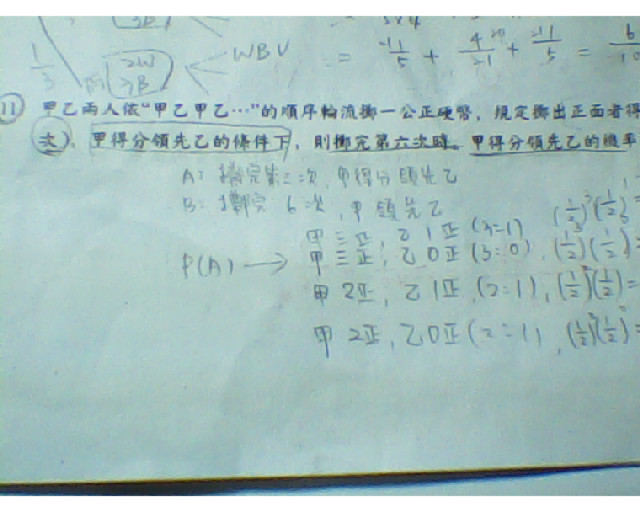 1/3 2W 3B WBV = -11/5 + 4/21 + -11/5 =
11 甲乙兩人依“甲乙甲乙…”的順序輪流擲一公正硬幣，規定擲出正面者得
次)，甲得分領先乙的條件下，則擲完第六次時。甲得分領先乙的機率
A: 擲完第三次，甲得分領先乙
B: 擲完6次，甲領先乙
甲三正，乙1正 (3=1) (1/2)³(1/2)
P(A) → 甲三正，乙0正 (3:0), (1/2)(1/2) =
甲2正，乙1正, (2:1), (1/2)(1/2) =
甲2正，乙0正 (2:1), (1/2)(1/2) =